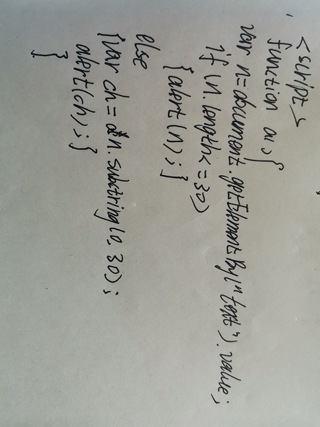 <script>
function a(){
var n=document.getElementsBy("text").value;
if (n.length<=30)
{alert(n);}
else
{var ch=n.substring(0,30);
alert(ch);}
}